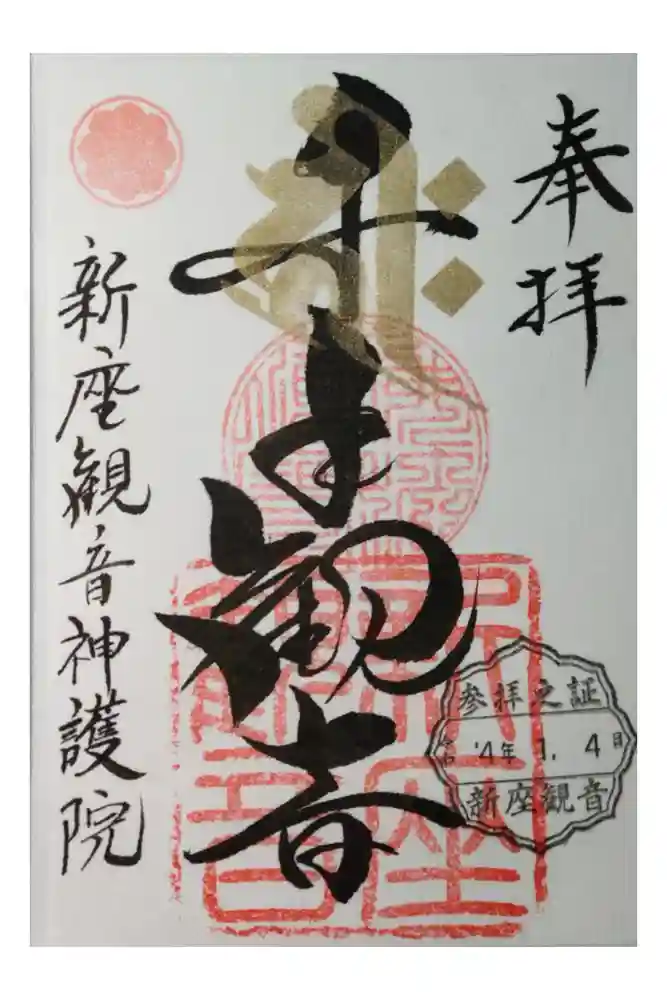 奉拝
千手観音
新座観音神護院
参拝之証
令和 '4年 1. 4日
新座観音